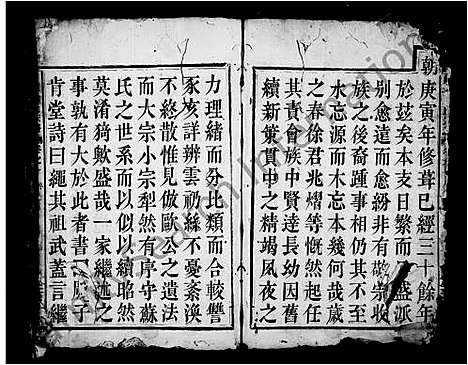 朝庚寅年修葺已經三十餘年
於茲矣本支日繁而 盛派
別愈遠而愈紛非有 崇收
族之後裔踵事相仍其不至
水忘源而木忘本幾何哉歲
之春徐君兆燿等慨然起任
其責會族中賢達長幼因舊
續新彚貫中之精竭夙夜之
力理緒而分比類而合較讐
豕亥詳辨雲礽絲不憂紊渙
不終散惟見倣歐公之遺法
而大宗小宗犁然有序守蘇
氏之世系而以似以續昭然
莫淆猗歟盛哉一家繼述之
事孰有大於此者書 子
肯堂詩曰繩其祖武蓋言繼